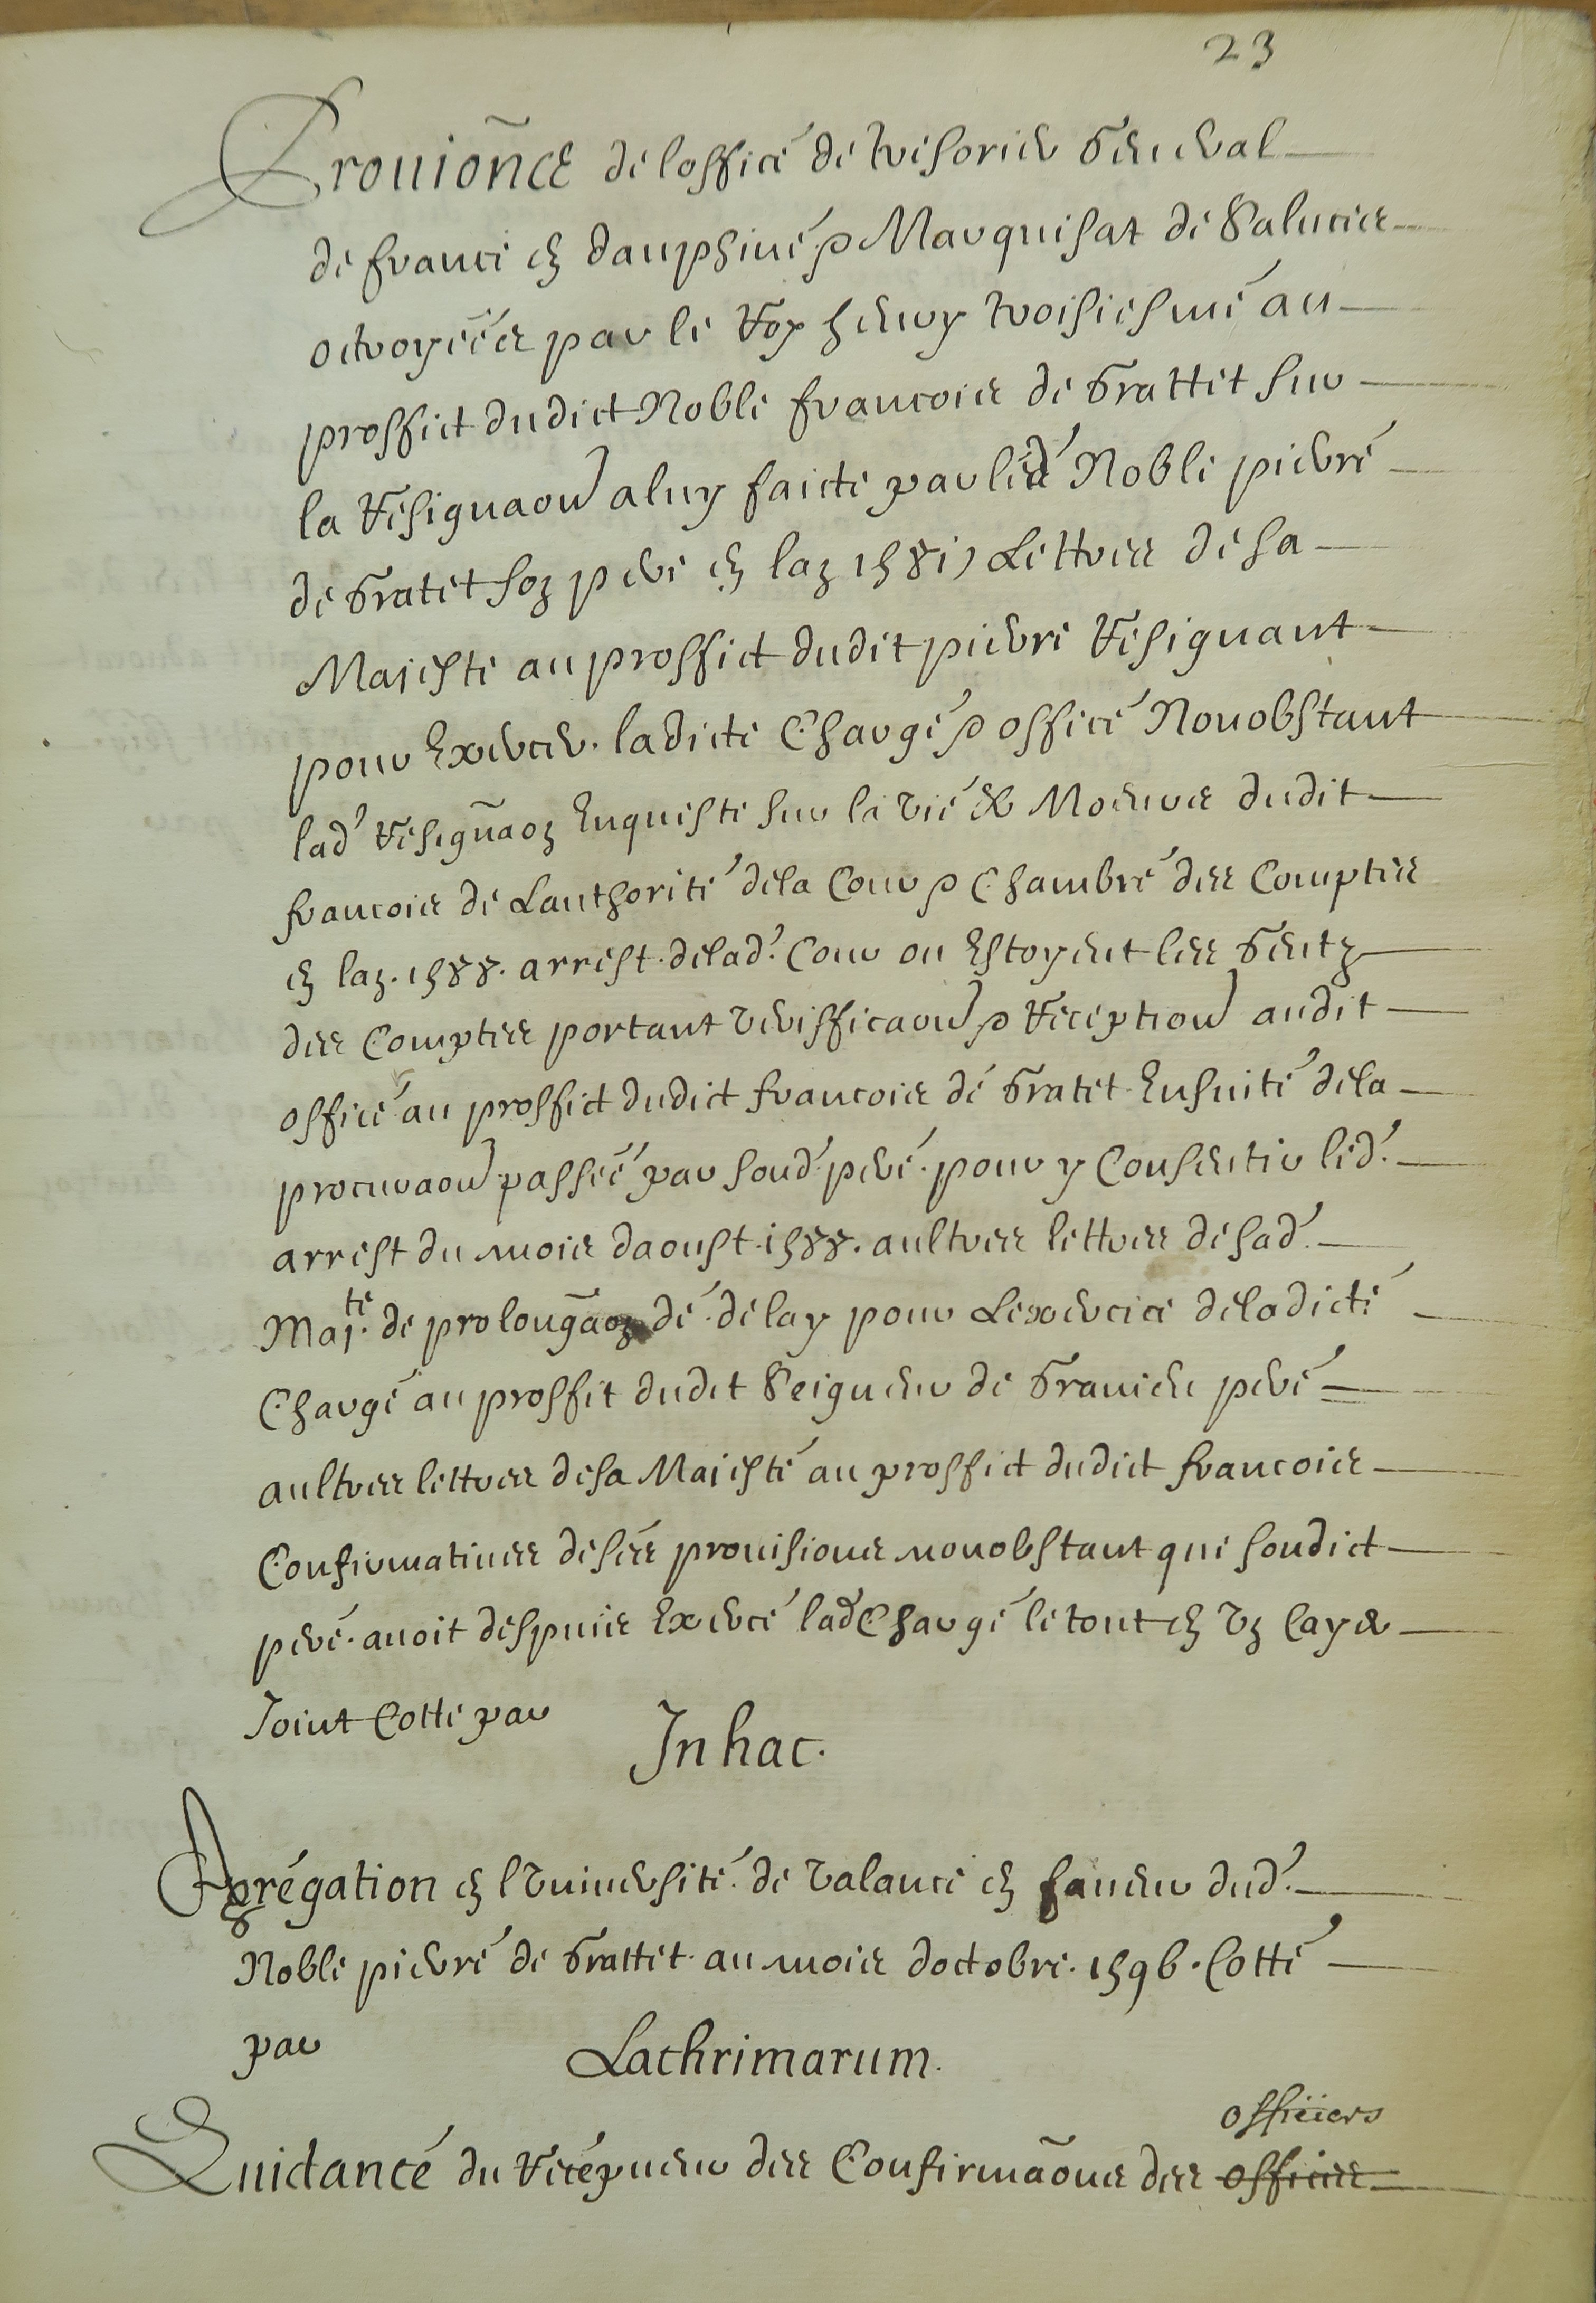 23
Prouiõnce de loffice de tresorier general
de france en dauphiné & Marquisat de Saluces
octroyéés par le Roy henry troisiesme au
proffict dudict Noble francois de Grattet sur
la resignaon a luy faicte par led Noble pierre
de Gratet son pere en lan 1581, Lettres de sa
Majeste au proffict dudit pierre resignant
pour Exercer ladicte Charge & office Nonobstant
lad resignãon Enqueste sur la vie & Moeurs dudit
francois de Lauthorité dela Cour & Chambre des Comptes
en lan. 1588. arrest delad. Cour ou Estoyent les Gentz
des Comptes portant veriffication & Reception audit
office au proffict dudict francois de Gratet Ensuite dela
procuraon passéé par sond pere. pour y Consentir led.
arrest du mois daoust. 1588. aultres lettres de sad.
Maj.te de prolongãon de delay pour Lexercice deladicte
Charge au proffit dudit Seigneur de Granieu pere
aultres lettres desa Majesté au proffict dudict francois
Confirmatiues deses prouisions nonobstant que sondict
pere. auoit despuis Exercé lad Charge le tout en vn Cayer
Joint Cotte par
In hac.
Agrégation en lvniuersité de valance en faueur dud.
Noble pierre de Grattet. au mois doctobre. 1596. Cotté
par
Lachrimarum.
Quictance du Recepueur des Confirmãons des offices
officiers